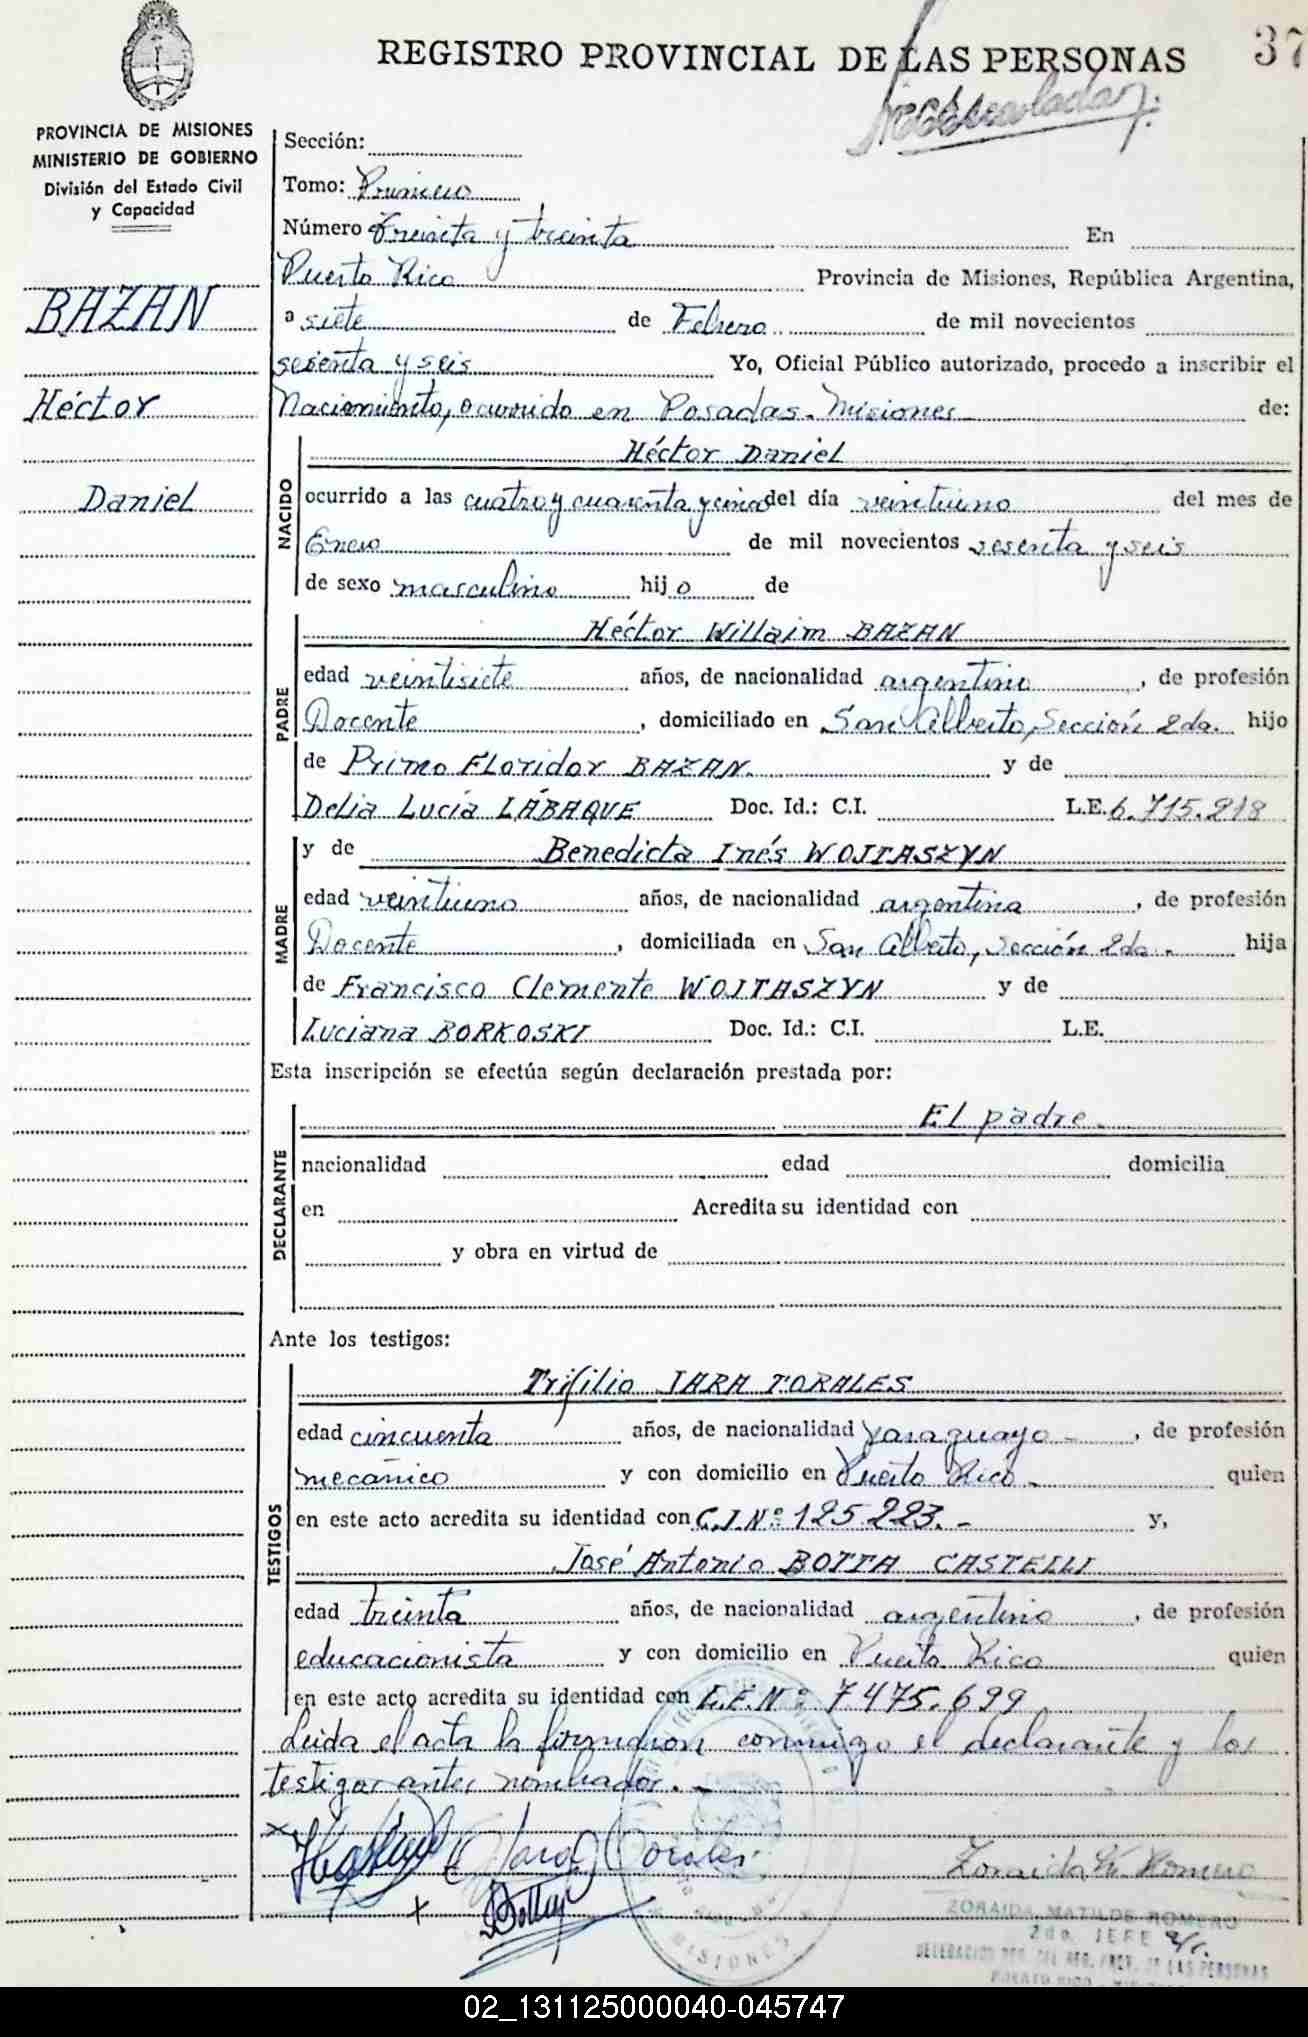 REGISTRO PROVINCIAL DE LAS PERSONAS
37
PROVINCIA DE MISIONES
MINISTERIO DE GOBIERNO
División del Estado Civil
y Capacidad
BAZAN
Héctor
Daniel
Sección:
Tomo: Primero
Número Treinta y treinta En
Puerto Rico Provincia de Misiones, República Argentina,
a siete de Febrero de mil novecientos
sesenta y seis Yo, Oficial Público autorizado, procedo a inscribir el
Nacimiento, ocurrido en Posadas - Misiones de:
NACIDO
Héctor Daniel
ocurrido a las cuatro y cuarenta y cinco del día veintiuno del mes de
Enero de mil novecientos sesenta y seis
de sexo masculino hijo de
PADRE
Héctor Willaim BAZAN
edad veintisiete años, de nacionalidad argentino, de profesión
Docente, domiciliado en San Alberto, Sección 2da. hijo
de Primo Floridor BAZAN. y de
Delia Lucía LÁBAQUE Doc. Id.: C.I. L.E. 6.715.218
MADRE
y de Benedicta Inés WOJTASZYN
edad veintiuno años, de nacionalidad argentina, de profesión
Docente, domiciliada en San Alberto, Sección 2da. hija
de Francisco Clemente WOJTASZYN y de
Luciana BORKOSKI Doc. Id.: C.I. L.E.
Esta inscripción se efectúa según declaración prestada por:
DECLARANTE
El padre
nacionalidad edad domicilia
en Acredita su identidad con
y obra en virtud de
Ante los testigos:
TESTIGOS
Trifilio JARA TORALES
edad cincuenta años, de nacionalidad paraguayo -, de profesión
mecánico y con domicilio en Puerto Rico - quien
en este acto acredita su identidad con C.I.Nº 125.223.- y,
José Antonio BOTTA CASTELLI
edad treinta años, de nacionalidad argentino, de profesión
educacionista y con domicilio en Puerto Rico quien
en este acto acredita su identidad con L.E.Nº 7475.699
Leída el acta la firman con conmigo el declarante y los
testigos antes nombrados.-
Jara Torales
Zoraida M. Romero
ZORAIDA MATILDE ROMERO
2do. JEFE
DELEGACION DEL REG. PROV. DE LAS PERSONAS
MISIONES
02_131125000040-045747